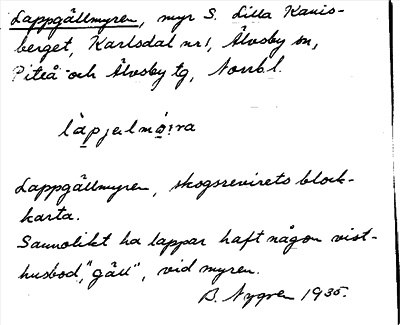 Lappgällmyren, myr S. Lilla Kanis-
berget, Karlsdal nr 1, Älvsby sn,
Piteå och Älvsby tg, Norrb. l.
làpjælmó̱:ra
Lappgällmyren, skogsrevirets block-
karta.
Sannolikt ha lappar haft någon vist-
husbod, "gäll", vid myren.
B. Nygren 1935.